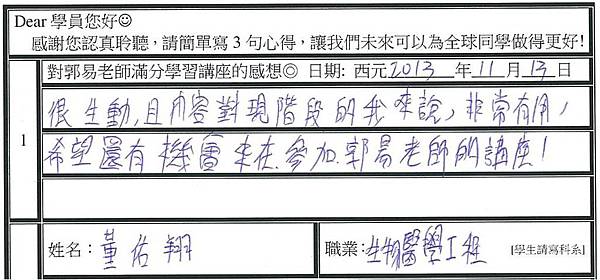 Dear 學員您好☺
感謝您認真聆聽，請簡單寫3句心得，讓我們未來可以為全球同學做得更好!
對郭易老師滿分學習講座的感想◎ 日期: 西元2013年11月13日
1
很生動,且內容對現階段的我來說,非常有用,
希望還有機會來在參加郭易老師的講座!
姓名：董佑翔
職業：生物醫學工程 [學生請寫科系]